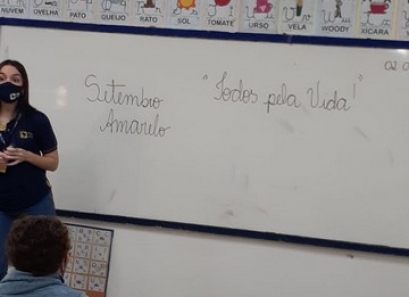 NUVEM OVELHA PATO QUEIJO RATO SOL TOMATE URSO VELA WOODY XÍCARA
Setembro
Amarelo
"Todos pela Vida!"